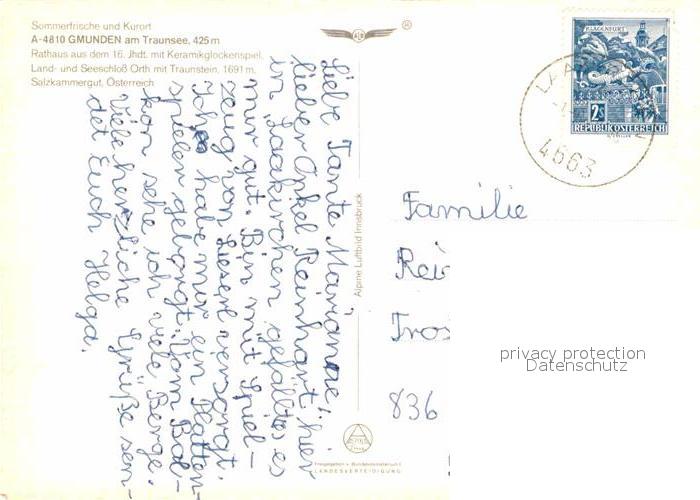 Sommerfrische und Kurort
A-4810 GMUNDEN am Traunsee, 425 m
Rathaus aus dem 16. Jhdt. mit Keramikglockenspiel,
Land- und Seeschloß Orth mit Traunstein, 1691 m,
Salzkammergut, Österreich
Liebe Tante Marianne,
lieber Onkel Reinhart! hier
in Laakirchen gefällt es
mir gut. Bin mit Spiel-
zeug von Lieserl versorgt.
habe mir ein Platten-
spielen geborgt. Vom Bal-
kon sehe ich viele Berge.
Viele herzliche Grüße sen-
det Euch Helga.
Alpine Luftbild Innsbruck
Freigegeben v. Bundesministerium f.
LANDESVERTEIDIGUNG
KLAGENFURT
2S
REPUBLIK ÖSTERREICH
4663
Familie
Rei
Tros
836
privacy protection
Datenschutz